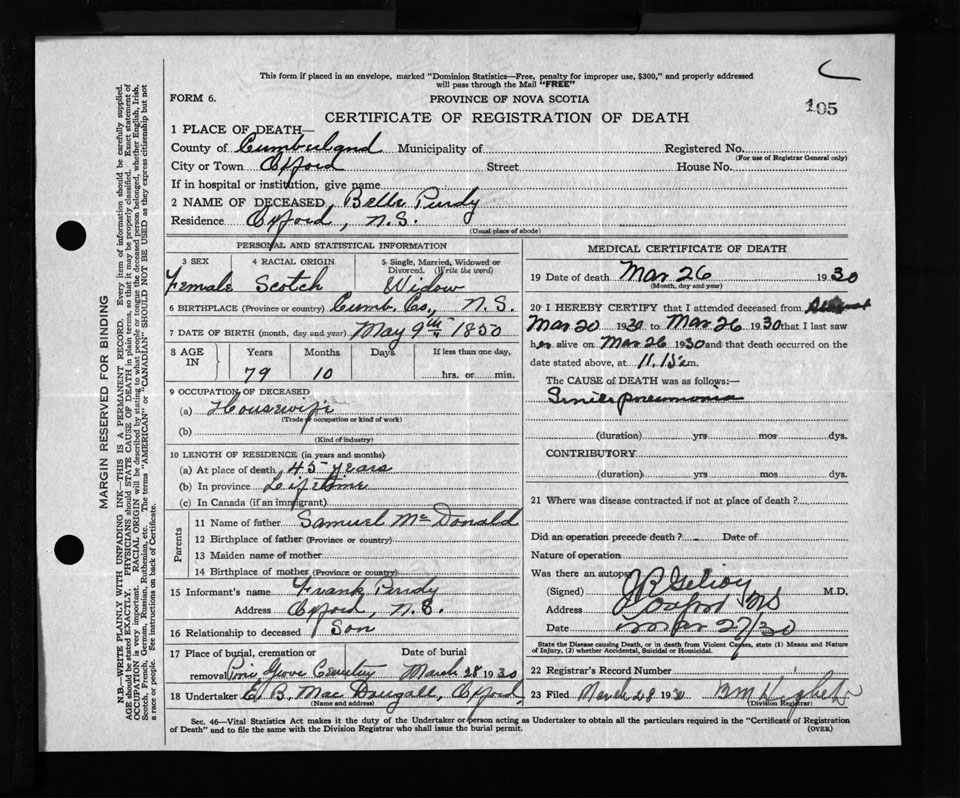 This form if placed in an envelope, marked "Dominion Statistics—Free, penalty for improper use, $300," and properly addressed
will pass through the Mail "FREE"
105
FORM 6.
PROVINCE OF NOVA SCOTIA
CERTIFICATE OF REGISTRATION OF DEATH
1 PLACE OF DEATH—
County of Cumberland Municipality of Registered No.
(For use of Registrar General only)
City or Town Oxford Street House No.
If in hospital or institution, give name
2 NAME OF DECEASED Belle Purdy
Residence Oxford, N.S.
(Usual place of abode)
PERSONAL AND STATISTICAL INFORMATION
3 SEX 4 RACIAL ORIGIN 5 Single, Married, Widowed or
Divorced. (Write the word)
Female Scotch Widow
6 BIRTHPLACE (Province or country) Cumb. Co., N.S.
7 DATE OF BIRTH (month, day and year) May 9th 1850
8 AGE IN Years Months Days If less than one day,
79 10 hrs. or min.
9 OCCUPATION OF DECEASED
(a) Housewife
(Trade occupation or kind of work)
(b)
(Kind of industry)
10 LENGTH OF RESIDENCE (in years and months)
(a) At place of death 45 years
(b) In province Lifetime
(c) In Canada (if an immigrant)
Parents
11 Name of father Samuel McDonald
12 Birthplace of father (Province or country)
13 Maiden name of mother
14 Birthplace of mother (Province or country)
15 Informant's name Frank Purdy
Address Oxford, N.S.
16 Relationship to deceased Son
17 Place of burial, cremation or Date of burial
removal Pine Grove Cemetery March 28 1930
18 Undertaker E. B. MacDougall, Oxford
(Name and address)
MEDICAL CERTIFICATE OF DEATH
19 Date of death Mar 26 1930
(Month, day and year)
20 I HEREBY CERTIFY that I attended deceased from
Mar 20 1930 to Mar 26 1930 that I last saw
her alive on Mar 26 1930 and that death occurred on the
date stated above, at 11.15 m.
The CAUSE of DEATH was as follows:—
Senile pneumonia
(duration) yrs mos dys.
CONTRIBUTORY
(duration) yrs mos dys.
21 Where was disease contracted if not at place of death ?
Did an operation precede death ? Date of
Nature of operation
Was there an autopsy
(Signed) M.D.
Address Oxford NS
Date Mar 27/30
State the Disease causing Death, or in death from Violent Causes, state (1) Means and Nature
of Injury, (2) whether Accidental, Suicidal or Homicidal.
22 Registrar's Record Number
23 Filed March 28 1930
(Division Registrar)
Sec. 46—Vital Statistics Act makes it the duty of the Undertaker or person acting as Undertaker to obtain all the particulars required in the "Certificate of Registration
of Death" and to file the same with the Division Registrar who shall issue the burial permit.
(OVER)
MARGIN RESERVED FOR BINDING
N.B.—WRITE PLAINLY WITH UNFADING INK—THIS IS A PERMANENT RECORD. Every item of information should be carefully supplied.
AGE should be stated EXACTLY. PHYSICIANS should STATE CAUSE OF DEATH in plain terms, so that it may be properly classified. Exact statement of
OCCUPATION is very important. RACIAL ORIGIN will be described by stating to what people or tongue the deceased person belonged, whether English, Irish,
Scotch, French, German, Russian, Ruthenian, etc. The terms "AMERICAN" or "CANADIAN" SHOULD NOT BE USED as they express citizenship but not
a race or people. See instructions on back of Certificate.